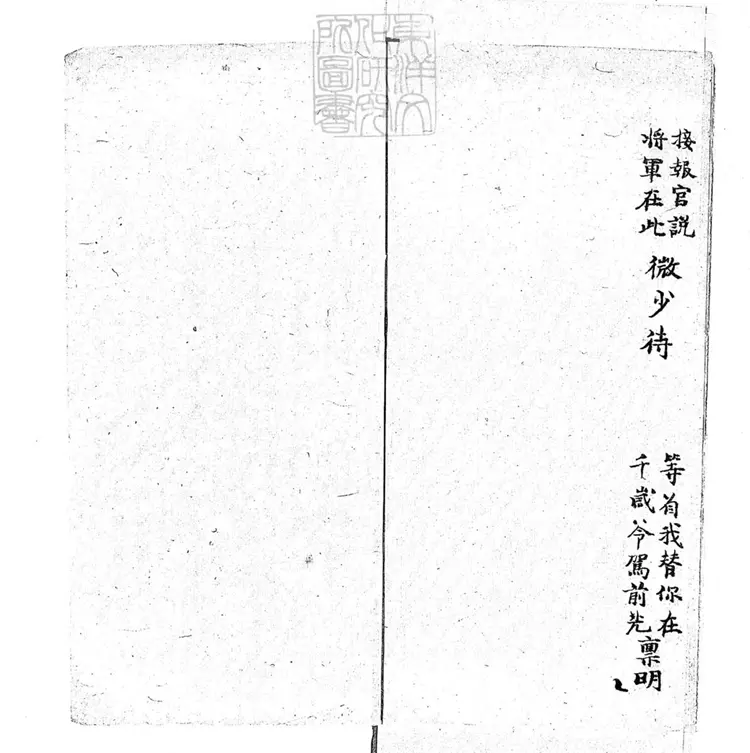 東洋文
化研究
所圖書
接報官説
将軍在此
微少待
等有我替你在
千歲爷駕前先禀明